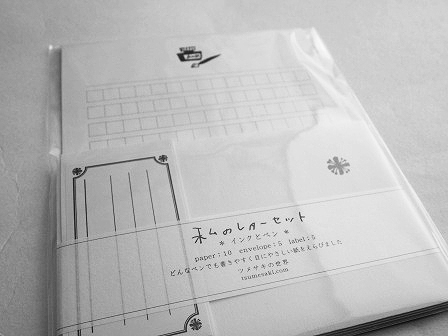 私のレターセット
* インクとペン *
paper:10 envelope:5 label:5
どんなペンでも書きやすく目にやさしい紙をえらびました
ツメサキの世界
tsumesaki.com